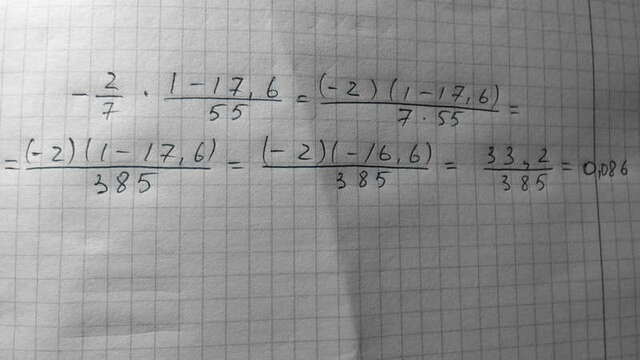 - 2/7 · (1-17,6)/55 = (-2)(1-17,6)/7·55 =
= (-2)(1-17,6)/385 = (-2)(-16,6)/385 = 33,2/385 = 0,086